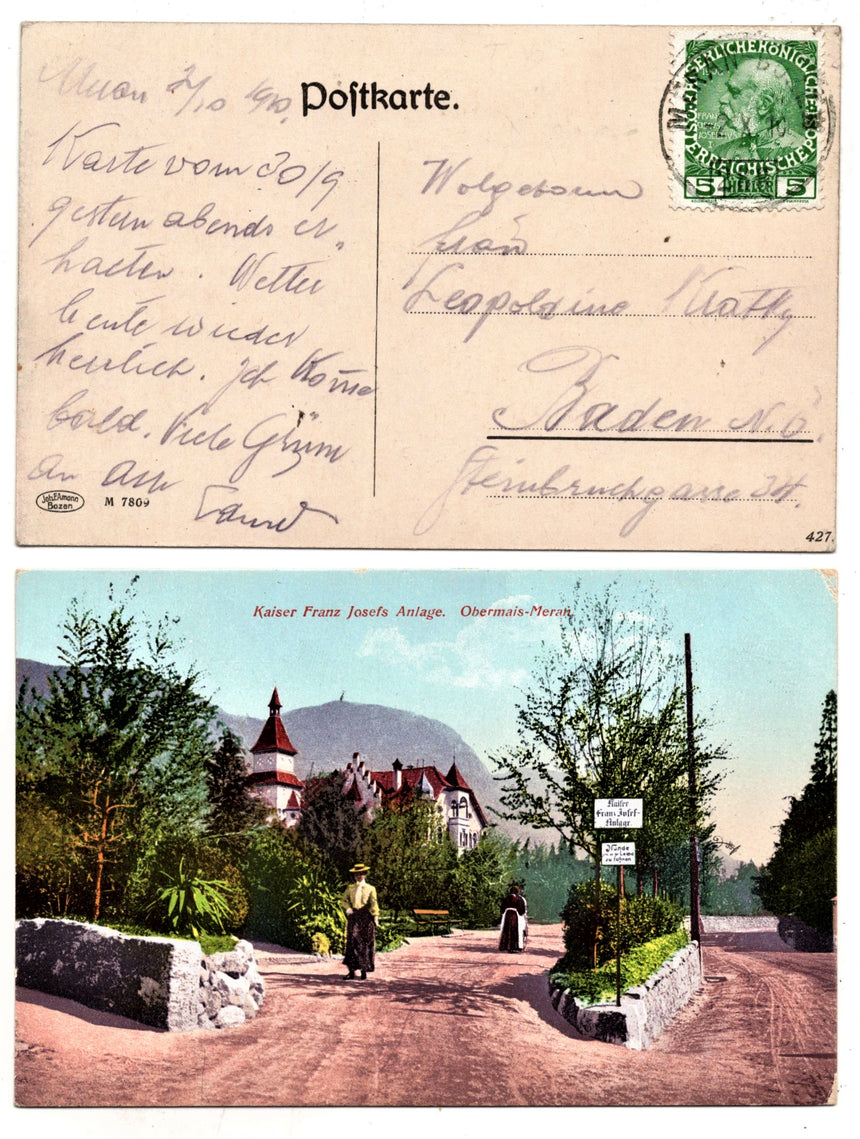 Meran 2/10 1910.
Postkarte.
Karte vom 30/9
gestern abends er„
halten. Wetter
heute wieder
herrlich. Ich komme
bald. Viele Grüsse
an alle
Joh. F. Amonn
Bozen
M 7809
Wolgeboren
Frau
Leopoldine Kratky
Baden N.Ö.
Steinbruchgasse 34.
427.
KAISERLICHEKÖNIGLICHE
ÖSTERREICHISCHEPOST
5 HELLER 5
Kaiser Franz Josefs Anlage. Obermais-Meran.
Kaiser
Franz Josef-
Anlage.
Hunde
zu führen